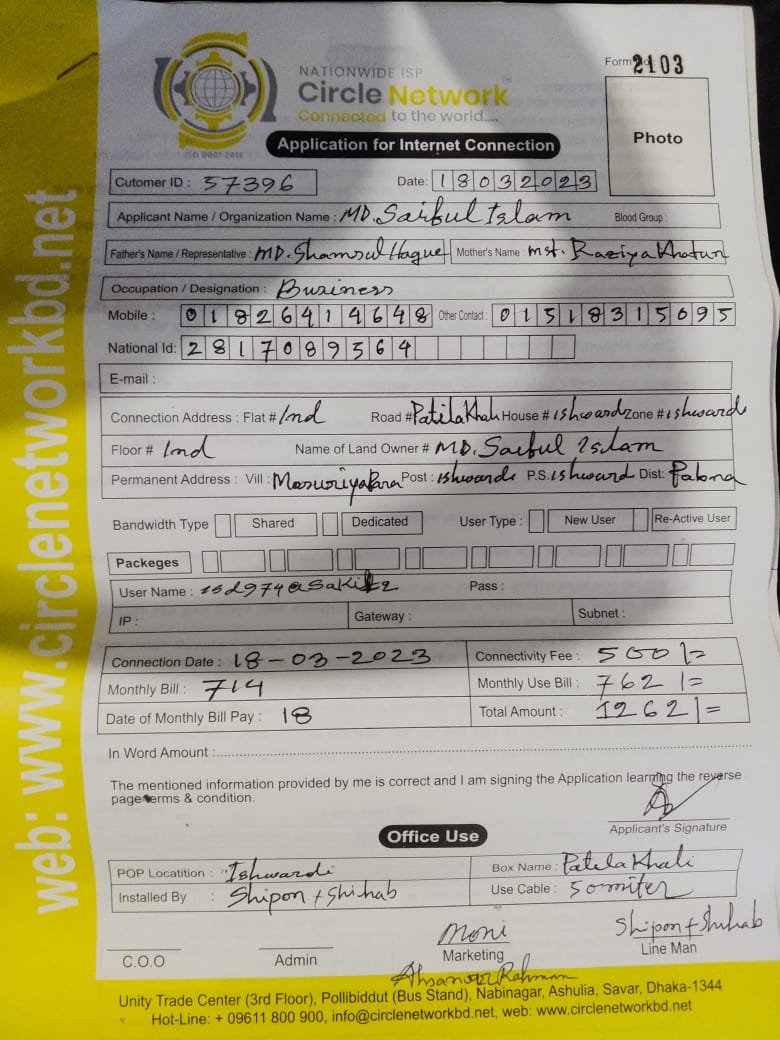 web: www.circlenetworkbd.net
NATIONWIDE ISP
Circle Network
Connected to the world....
ISO 9001:2015
Form No: 2103
Photo
Application for Internet Connection
Cutomer ID : 57396 Date: 18032023
Applicant Name / Organization Name : MD. Saiful Islam Blood Group :
Father's Name / Representative : MD. Shamsul Haque Mother's Name : Mst. Raziya Khatun
Occupation / Designation : Business
Mobile : 01826414648 Other Contact : 01518315095
National Id: 2817089564
E-mail :
Connection Address : Flat # 1nd Road # Patila Khali House # ishward Zone # ishward
Floor # 1nd Name of Land Owner # MD. Saiful Islam
Permanent Address : Vill : Masuriyapara Post : ishwardi P.S. ishward Dist: Pabna
Bandwidth Type Shared Dedicated User Type : New User Re-Active User
Packeges
User Name : Pass :
IP : Gateway : Subnet :
Connection Date : 18-03-2023 Connectivity Fee : 500/=
Monthly Bill : 714 Monthly Use Bill : 762/=
Date of Monthly Bill Pay : 18 Total Amount : 1262/=
In Word Amount :
The mentioned information provided by me is correct and I am signing the Application learning the reverse
page terms & condition.
Applicant's Signature
Office Use
POP Locatition : Ishwardi Box Name : Patila Khali
Installed By : Shipon + Shihab Use Cable : 50 miter
Moni Shipon + Shihab
C.O.O Admin Marketing Line Man
Ahsanur Rahman
Unity Trade Center (3rd Floor), Pollibiddut (Bus Stand), Nabinagar, Ashulia, Savar, Dhaka-1344
Hot-Line: + 09611 800 900, info@circlenetworkbd.net, web: www.circlenetworkbd.net